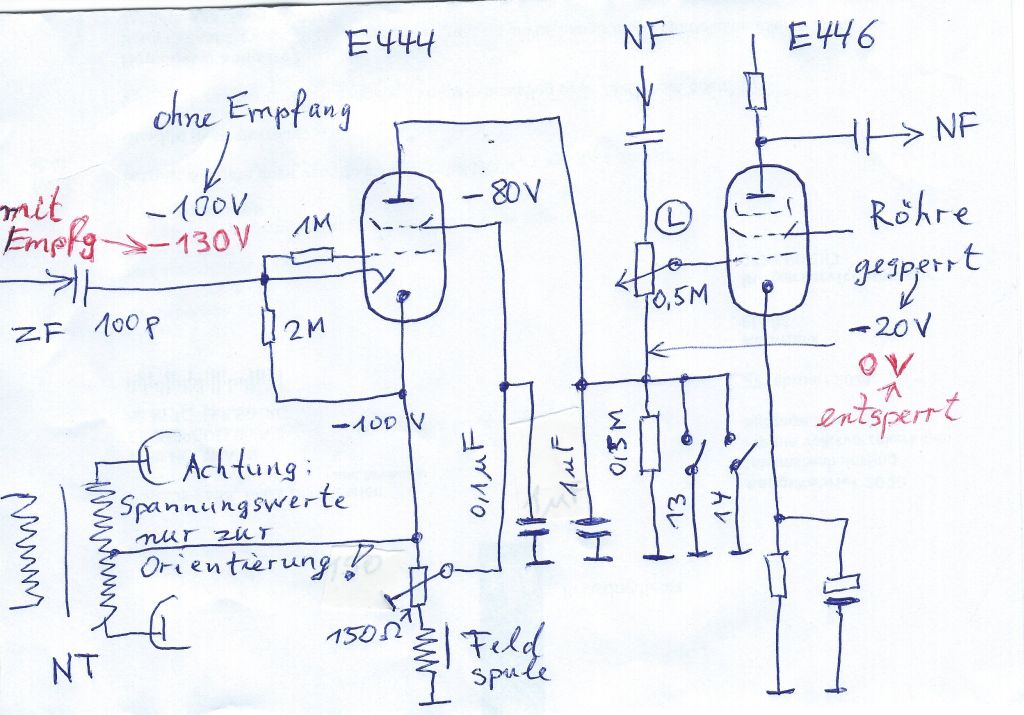 E444
NF
E446
ohne Empfang
NF
-100V
-80V
mit
Empfg
-130V
1M
L
Röhre
gesperrt
0,5M
ZF
100p
2M
-20V
0V
entsperrt
-100V
0,1µF
1µF
0,5M
13
14
Achtung:
Spannungswerte
nur zur
Orientierung!
150Ω
Feld
spule
NT